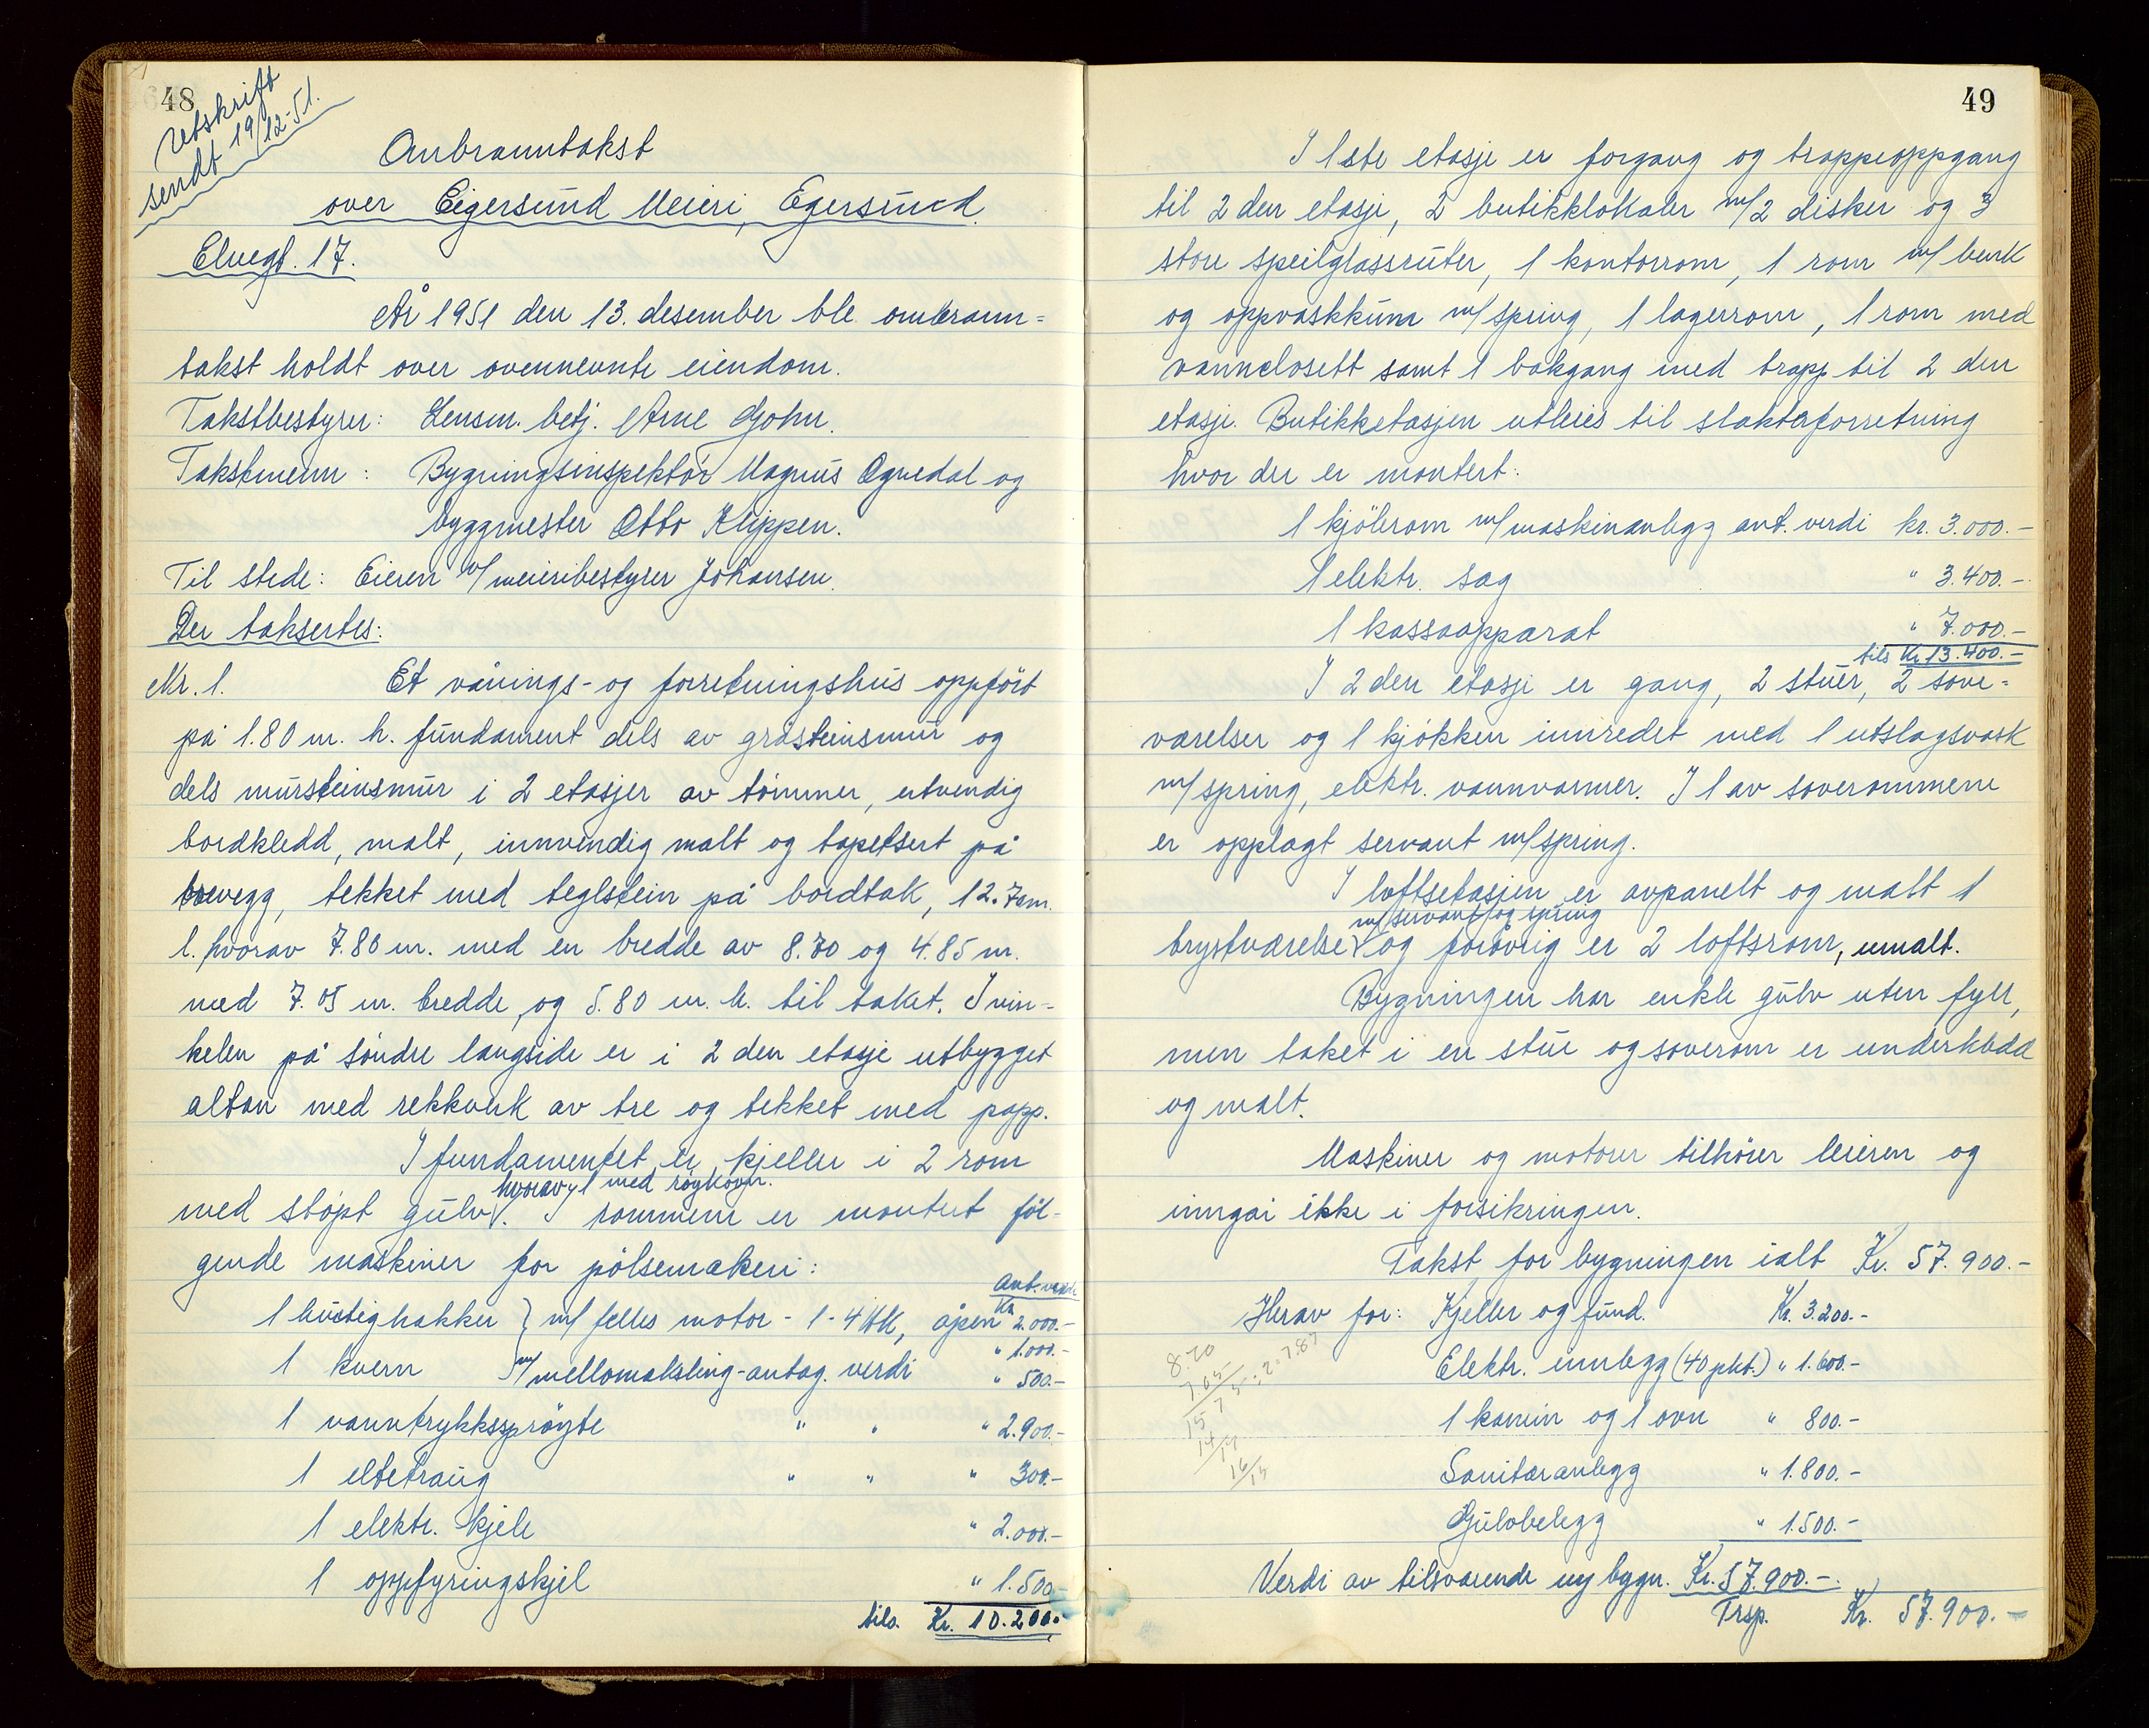 48
Utskrift
sendt 19/12-51.
Ombranntakst
over Eigersund Meieri, Egersund.
Elvegt. 17.
År 1951 den 13. desember ble ombrann=
takst holdt over ovennevnte eiendom.
Takstbestyrer: Lensm. betj. Arne Gjohn.
Takstmenn: Bygningsinspektør Magnus Ognedal og
byggmester Otto Klippen.
Til stede: Eieren v/meieribestyrer Johansen.
Der taksertes:
Nr. 1. Et vånings- og forretningshus oppført
på 1.80 m. h. fundament dels av gråsteinsmur og
dels mursteinsmur i 2 etasjer av tømmer, utvendig
bordkledd, malt, innvendig malt og tapetsert på
trevegg, tekket med teglstein på bordtak, 12.70m.
l. hvorav 7.80 m. med en bredde av 8.70 og 4.85 m.
med 7.05 m. bredde, og 5.80 m. h. til taket. I vin-
kelen på søndre langside er i 2 den etasje utbygget
altan med rekkverk av tre og tekket med papp.
I fundamentet er kjeller i 2 rom
hvorav 1 med røykovn.
med støpt gulv. I rommene er montert føl-
gende maskiner for pølsemakeri:
Ant. verdi
1 hurtighakker } m/ felles motor - 1 - 4 HK, åpen Kr 2.000.-
" 1.000.-
1 kvern m/mellomaksling - antag. verdi " 500.-
1 vanntrykkssprøyte " " " 2.900.-
1 eltetraug " " " 300.-
1 elektr. kjele " 2.000.-
1 oppfyringskjel " 1.500.-
tils. Kr. 10.200.-
49
I 1ste etasje er forgang og trappeoppgang
til 2 den etasje, 2 butikklokaler m/2 disker og 3
store speilglassruter, 1 kontorrom, 1 rom m/benk
og oppvaskkum m/spring, 1 lagerrom, 1 rom med
vannclosett samt 1 bakgang med trapp til 2 den
etasje. Butikketasjen utleies til slakterforretning
hvor der er montert:
1 kjølerom m/maskinanlegg ant. verdi kr. 3.000.-
1 elektr. sag " 3.400.-
1 kassaapparat " 7.000.-
tils Kr 13.400.-
I 2 den etasje er gang, 2 stuer, 2 sove=
værelser og 1 kjøkken innredet med 1 utslagsvask
m/spring, elektr. vannvarmer. I 1 av soverommene
er opplagt servant m/spring.
I loftsetasjen er avpanelt og malt 1
m/servant og spring
brystværelse og forøvrig er 2 loftsrom, umalt.
Bygningen har enkle gulv uten fyll,
men taket i en stue og soverom er underkledd
og malt.
Maskiner og motorer tilhører leieren og
inngår ikke i forsikringen.
Takst for bygningen ialt Kr. 57.900.-
Herav for: Kjeller og fund. Kr. 3.200.-
Elektr. innlegg (40 pkt.) " 1.600.-
1 kamin og 1 ovn " 800.-
Sanitæranlegg " 1.800.-
Gulvbelegg " 1.500.-
8.70
7.05
15 75 : 2 = 7.87
14
17
16
15
Verdi av tilsvarende ny bygn. Kr. 57.900.-
Trsp. Kr. 57.900.-